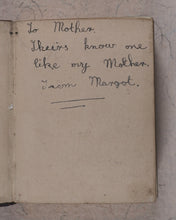 To Mother.
Theirs know one
like my Mother.
From Margot.